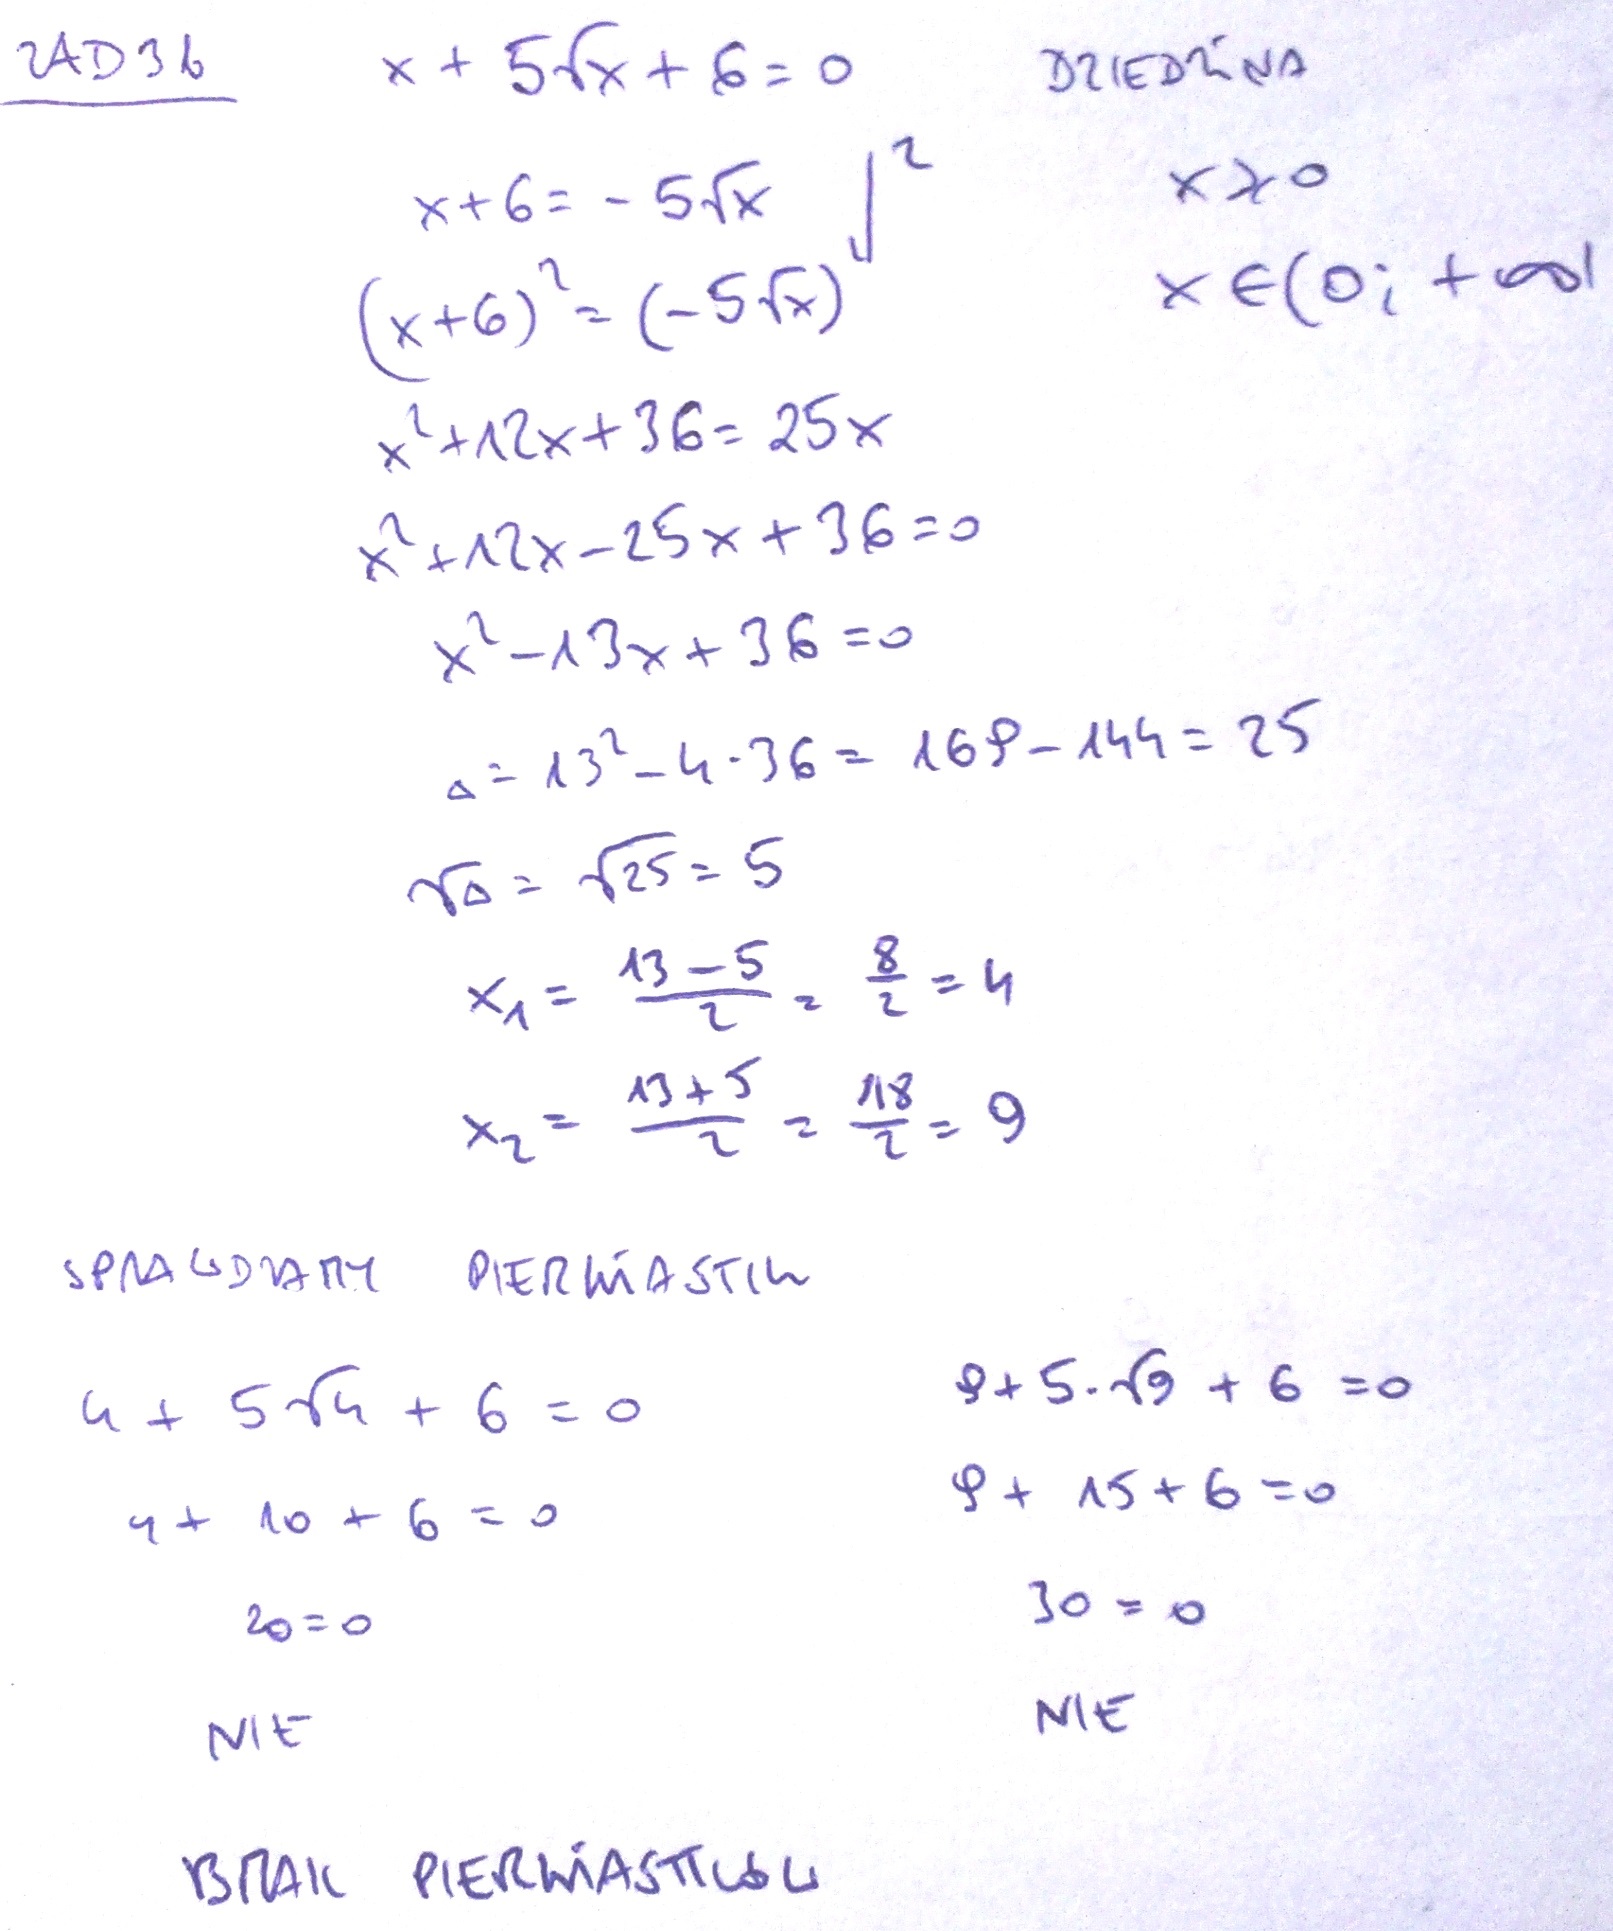 ZAD 36 x + 5√x + 6 = 0 DZIEDZINA
x + 6 = - 5√x |² x ≥ 0
(x+6)² = (-5√x)² x ∈ (0; +∞)
x² + 12x + 36 = 25x
x² + 12x - 25x + 36 = 0
x² - 13x + 36 = 0
Δ = 13² - 4·36 = 169 - 144 = 25
√Δ = √25 = 5
x₁ = (13 - 5)/2 = 8/2 = 4
x₂ = (13 + 5)/2 = 18/2 = 9
SPRAWDZAMY PIERWIASTKI
4 + 5√4 + 6 = 0 9 + 5·√9 + 6 = 0
4 + 10 + 6 = 0 9 + 15 + 6 = 0
20 = 0 30 = 0
NIE NIE
BRAK PIERWIASTKÓW